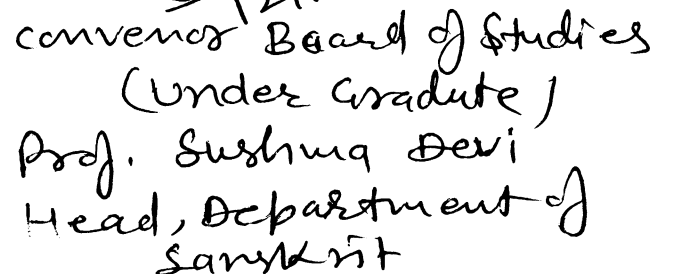 Convenor Board of Studies
(Under Gradute)
Prof. Sushma Devi
Head, Department of
Sanskrit